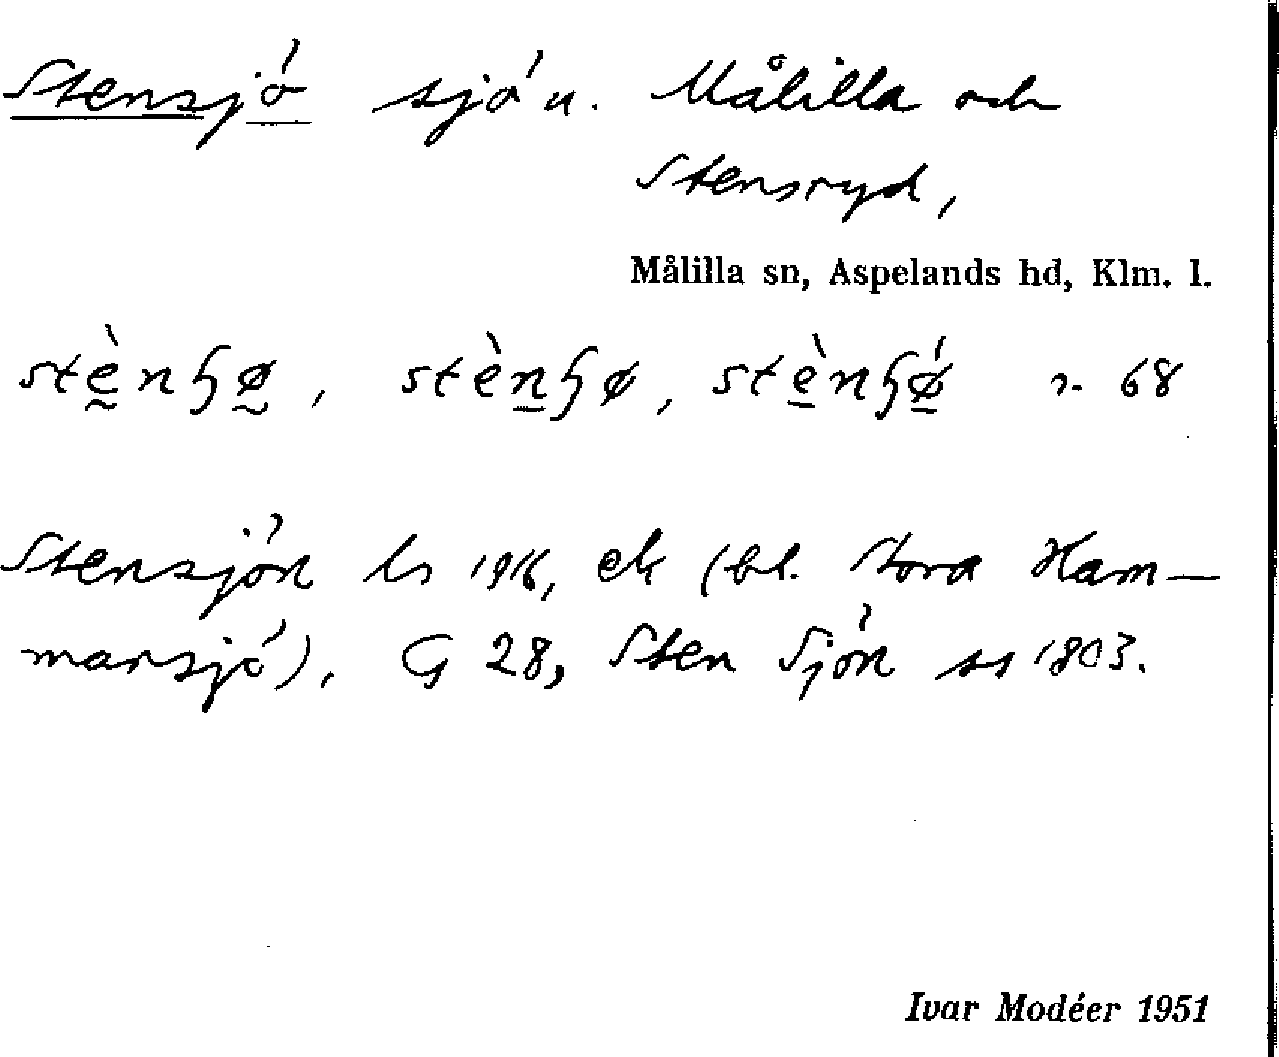 Stensjö sjön. Målilla och
Stensryd,
Målilla sn, Aspelands hd, Klm. l.
stènɧø, stènɧø, stènɧǿ 68
Stensjön ls 1916, ek (bl. Stora Ham-
marsjö), G 28, Sten Sjön ss 1803.
Ivar Modéer 1951